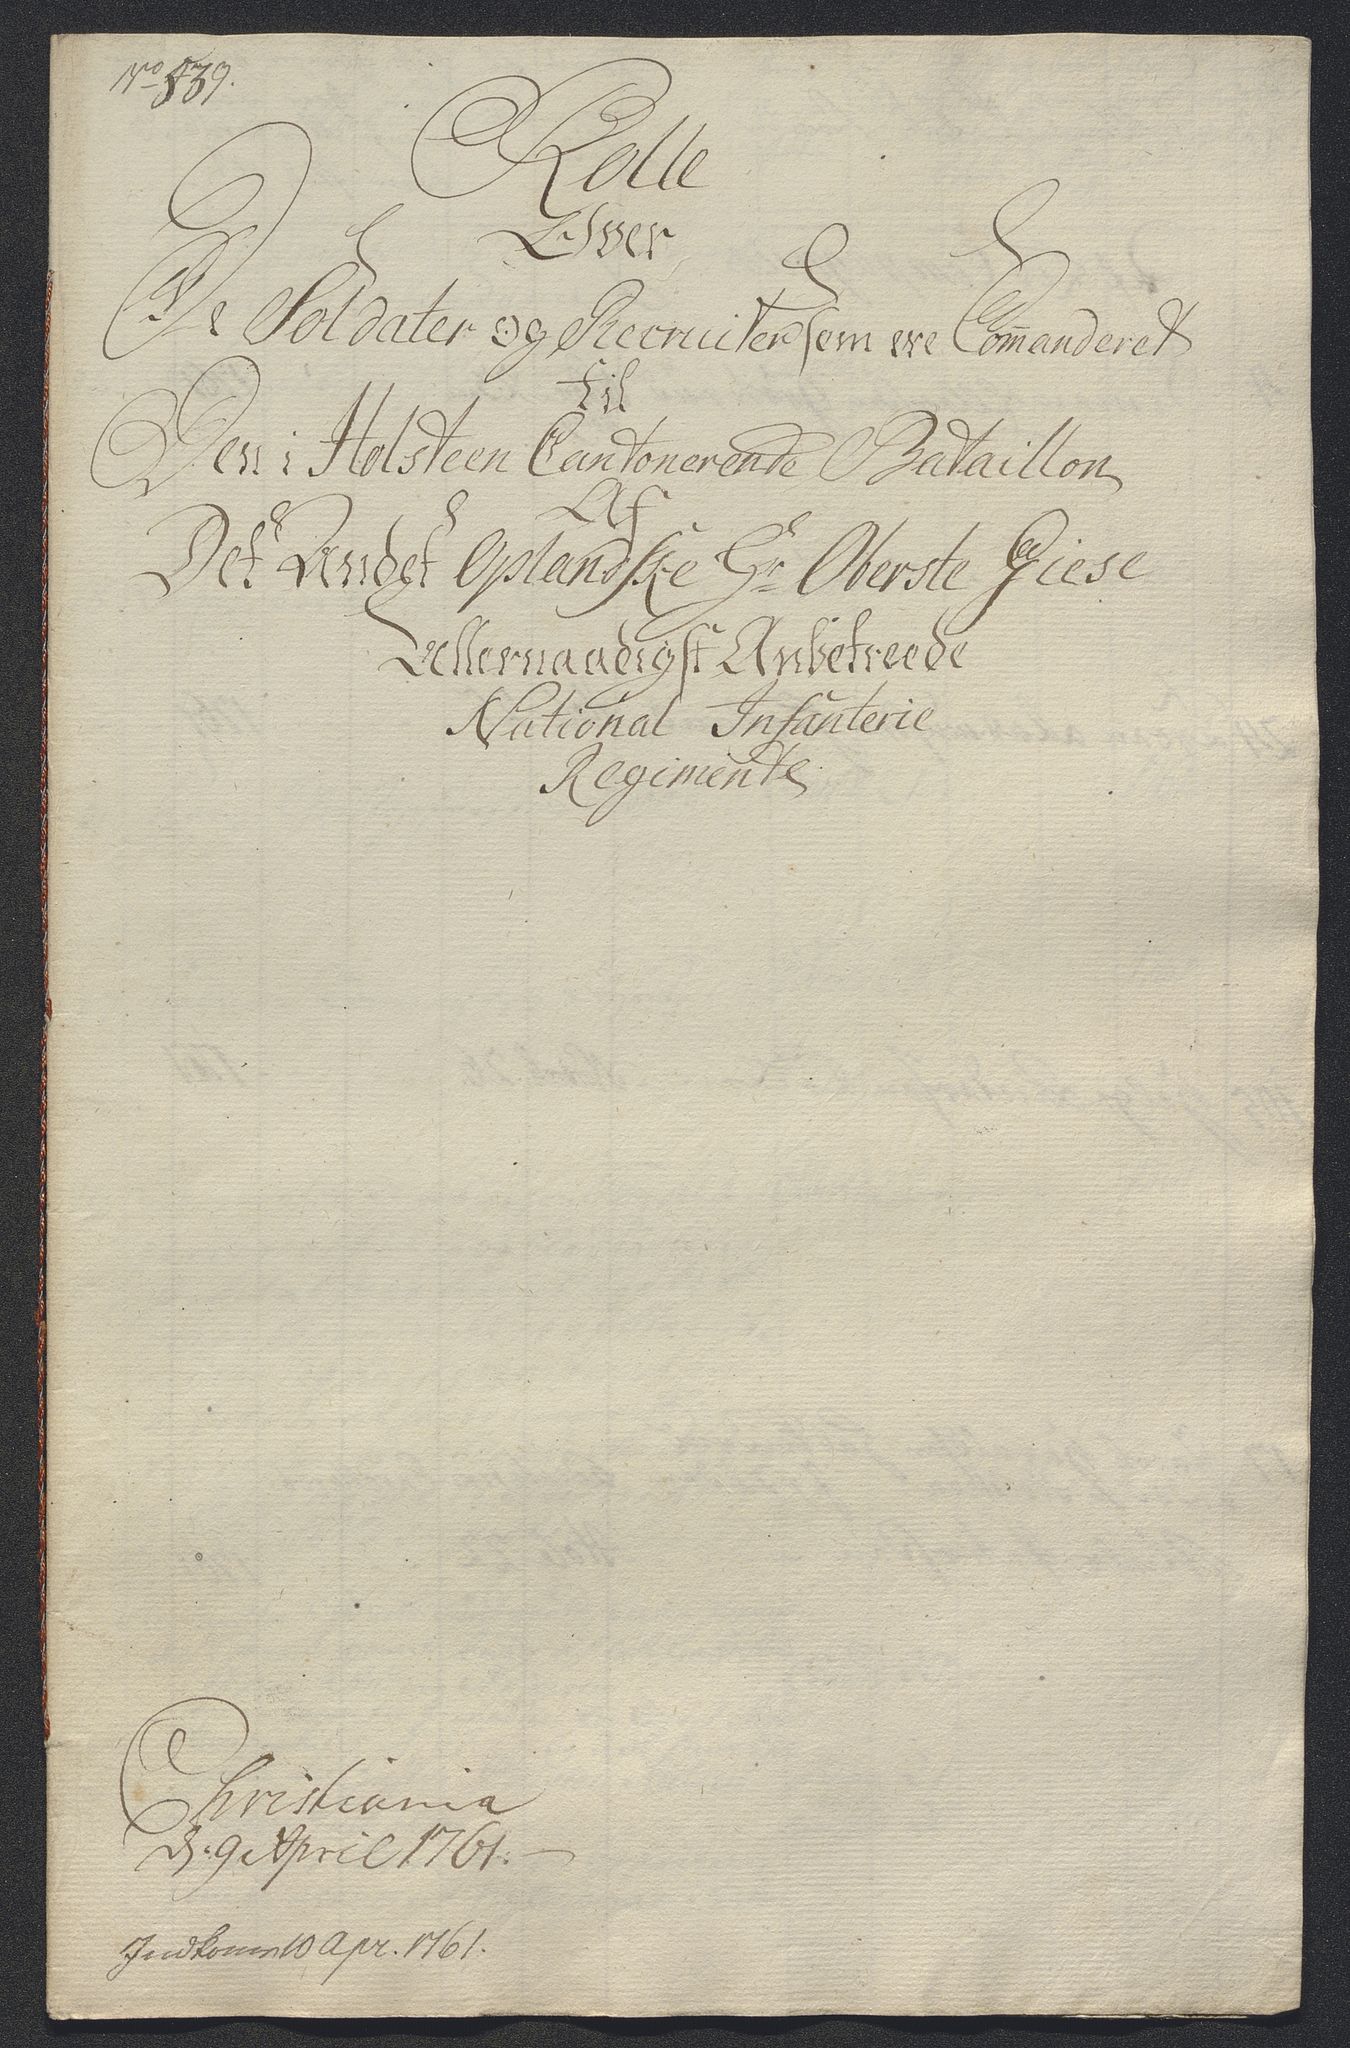 No 539.
Rolle
Over
De Soldater og Recruiter som ere Com̄anderet
til
Den i Holsteen Cantonerende Bataillon
Af
Det Andet Oplandske Hr Oberste Giese
Allernaadigst Anbetroede
National Infanterie
Regimente
Christiania
D: 9 April 1761.
Indkom 10 Apr. 1761.